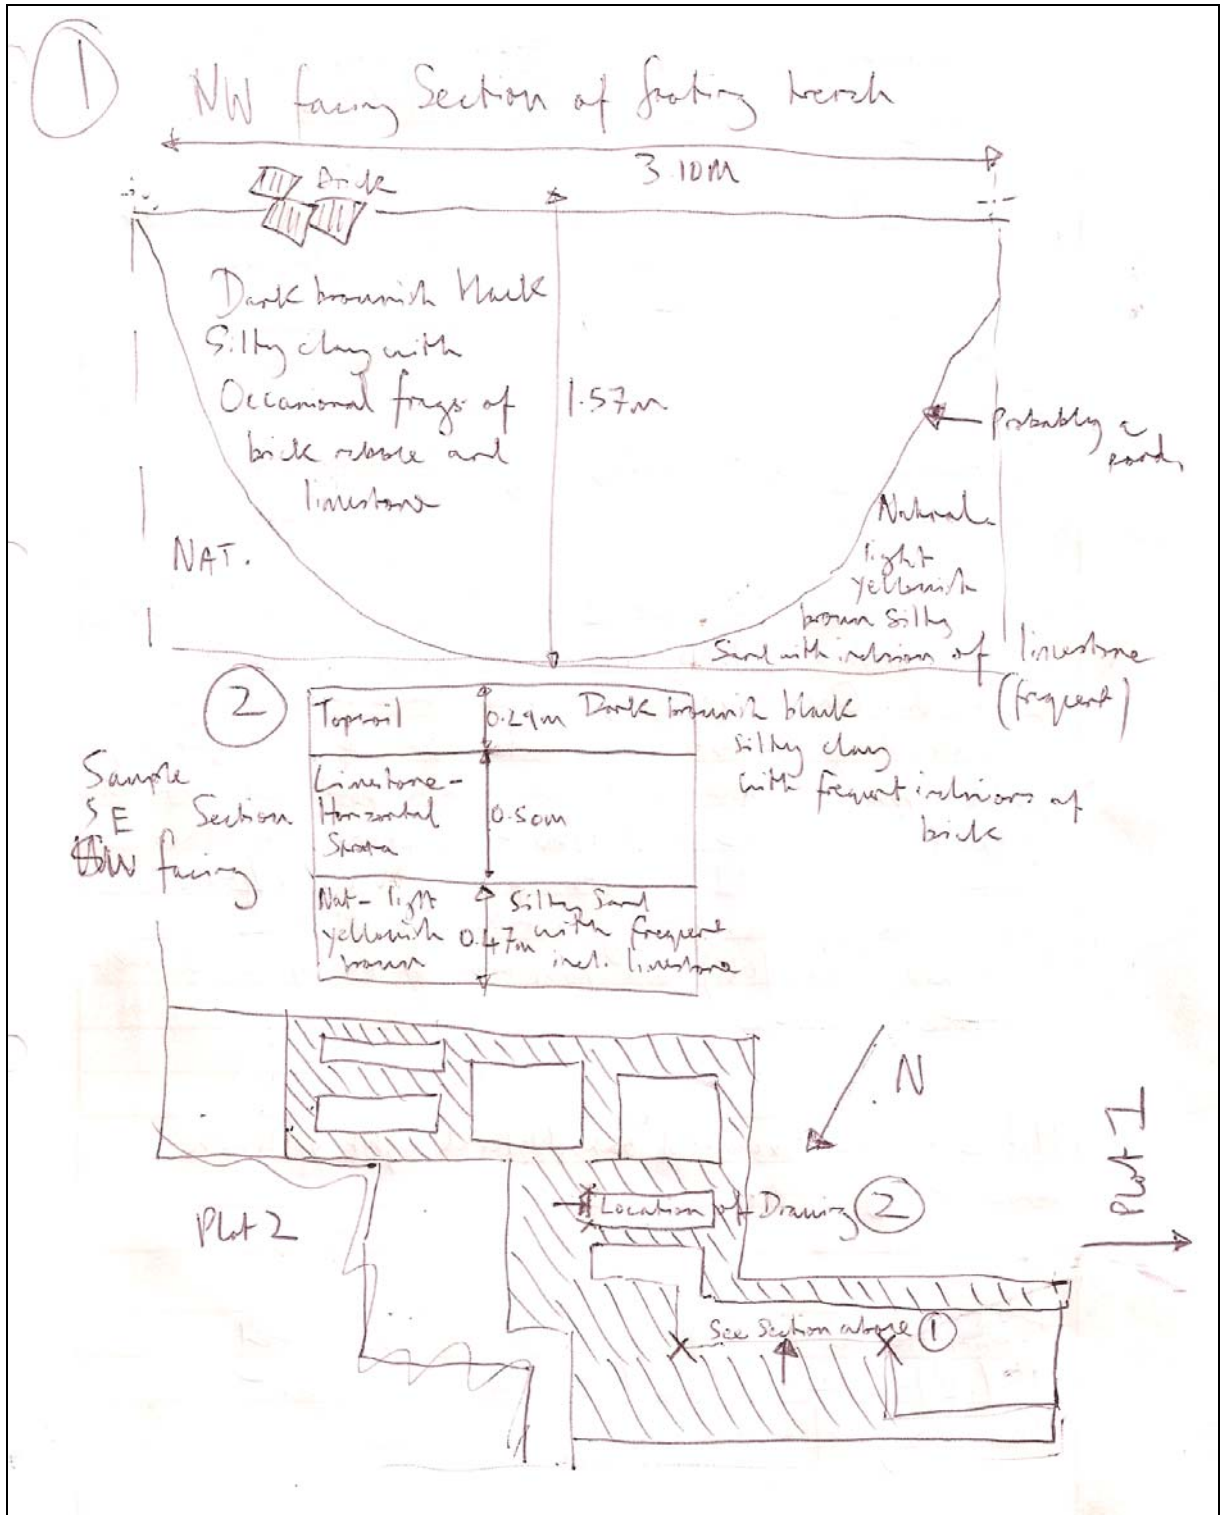 1
NW facing Section of footing trench
3.10m
Brick
Dark brownish black
Silty clay with
Occasional frags of
brick rubble and
limestone
1.57m
Probably a
pond
NAT.
Natural-
light
yellowish
brown Silty
Sand with inclusion of limestone
(frequent)
2
Sample
SE Section
facing
Topsoil
0.29m
Dark brownish black
silty clay
with frequent inclusions of
brick
Limestone-
Horizontal
Strata
0.50m
Nat- light
yellowish
brown
0.47m
Silty Sand
with frequent
incl. limestone
N
Plot 1
Plot 2
Location of Drawing 2
See Section above 1